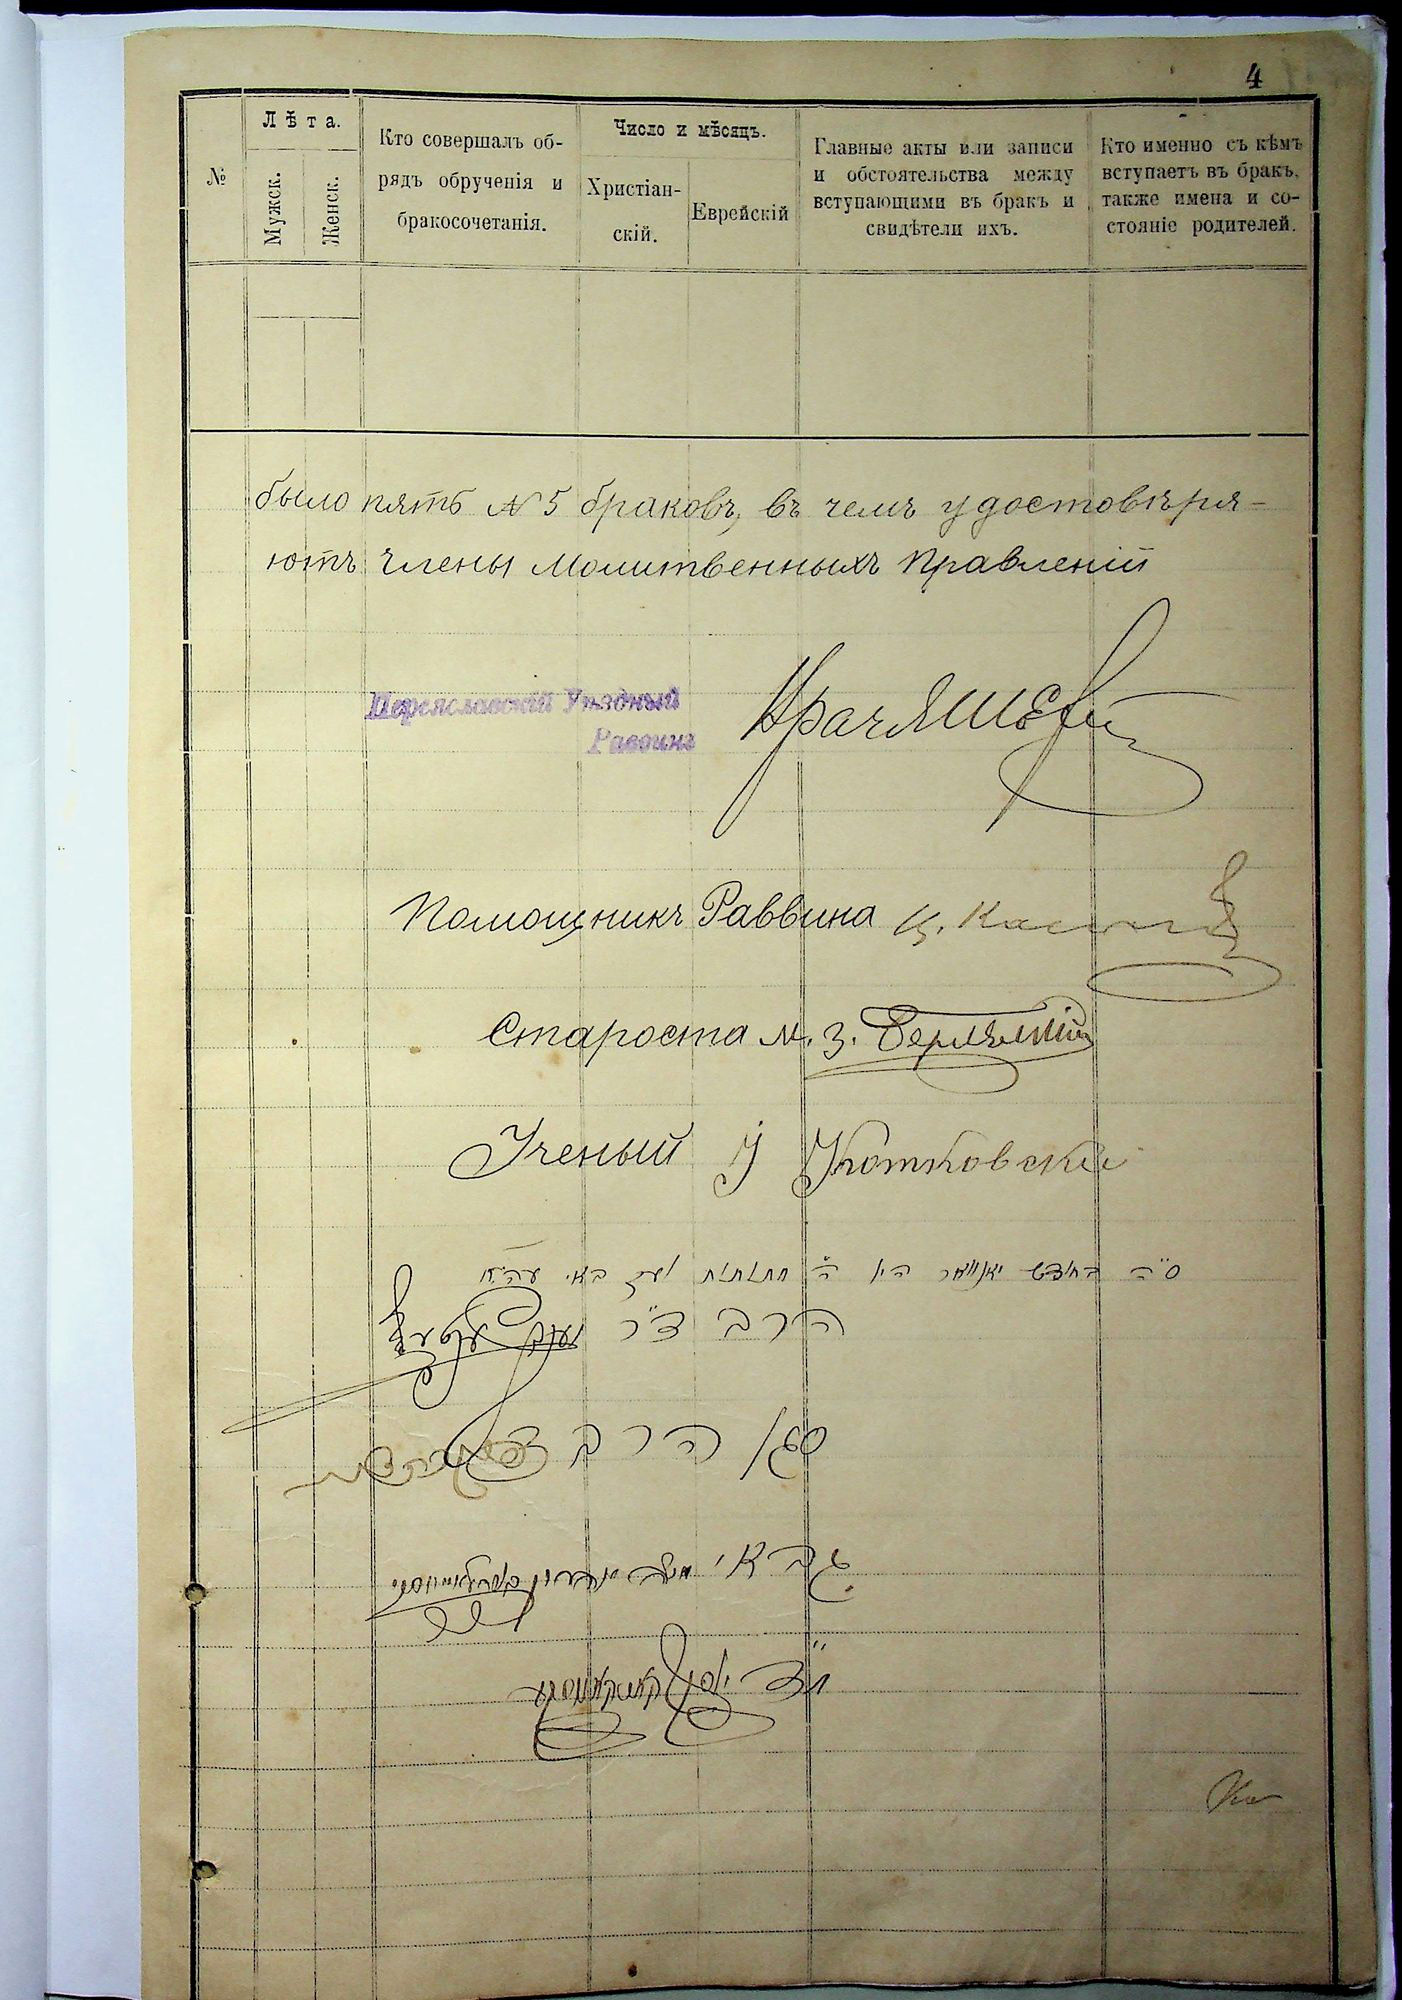 4
№
Лѣта.
Мужск.
Женск.
Кто совершалъ об-
рядъ обрученія и
бракосочетанія.
Число и мѣсяцъ.
Христіан-
скій.
Еврейскій
Главные акты или записи
и обстоятельства между
вступающими въ бракъ и
свидѣтели ихъ.
Кто именно съ кѣмъ
вступаетъ въ бракъ,
также имена и со-
стояніе родителей.
было пять № 5 браковъ, въ чемъ удостовѣря-
ютъ члены Молитвенныхъ Правленій
Переяславскій Уѣздный
Раввинъ
Помощникъ Раввина
Староста М. З.
Ученый
ס״ה בחודש יאנואר היו ה׳ חתונות
הרב ד״ר
סגן הרב
גבאי